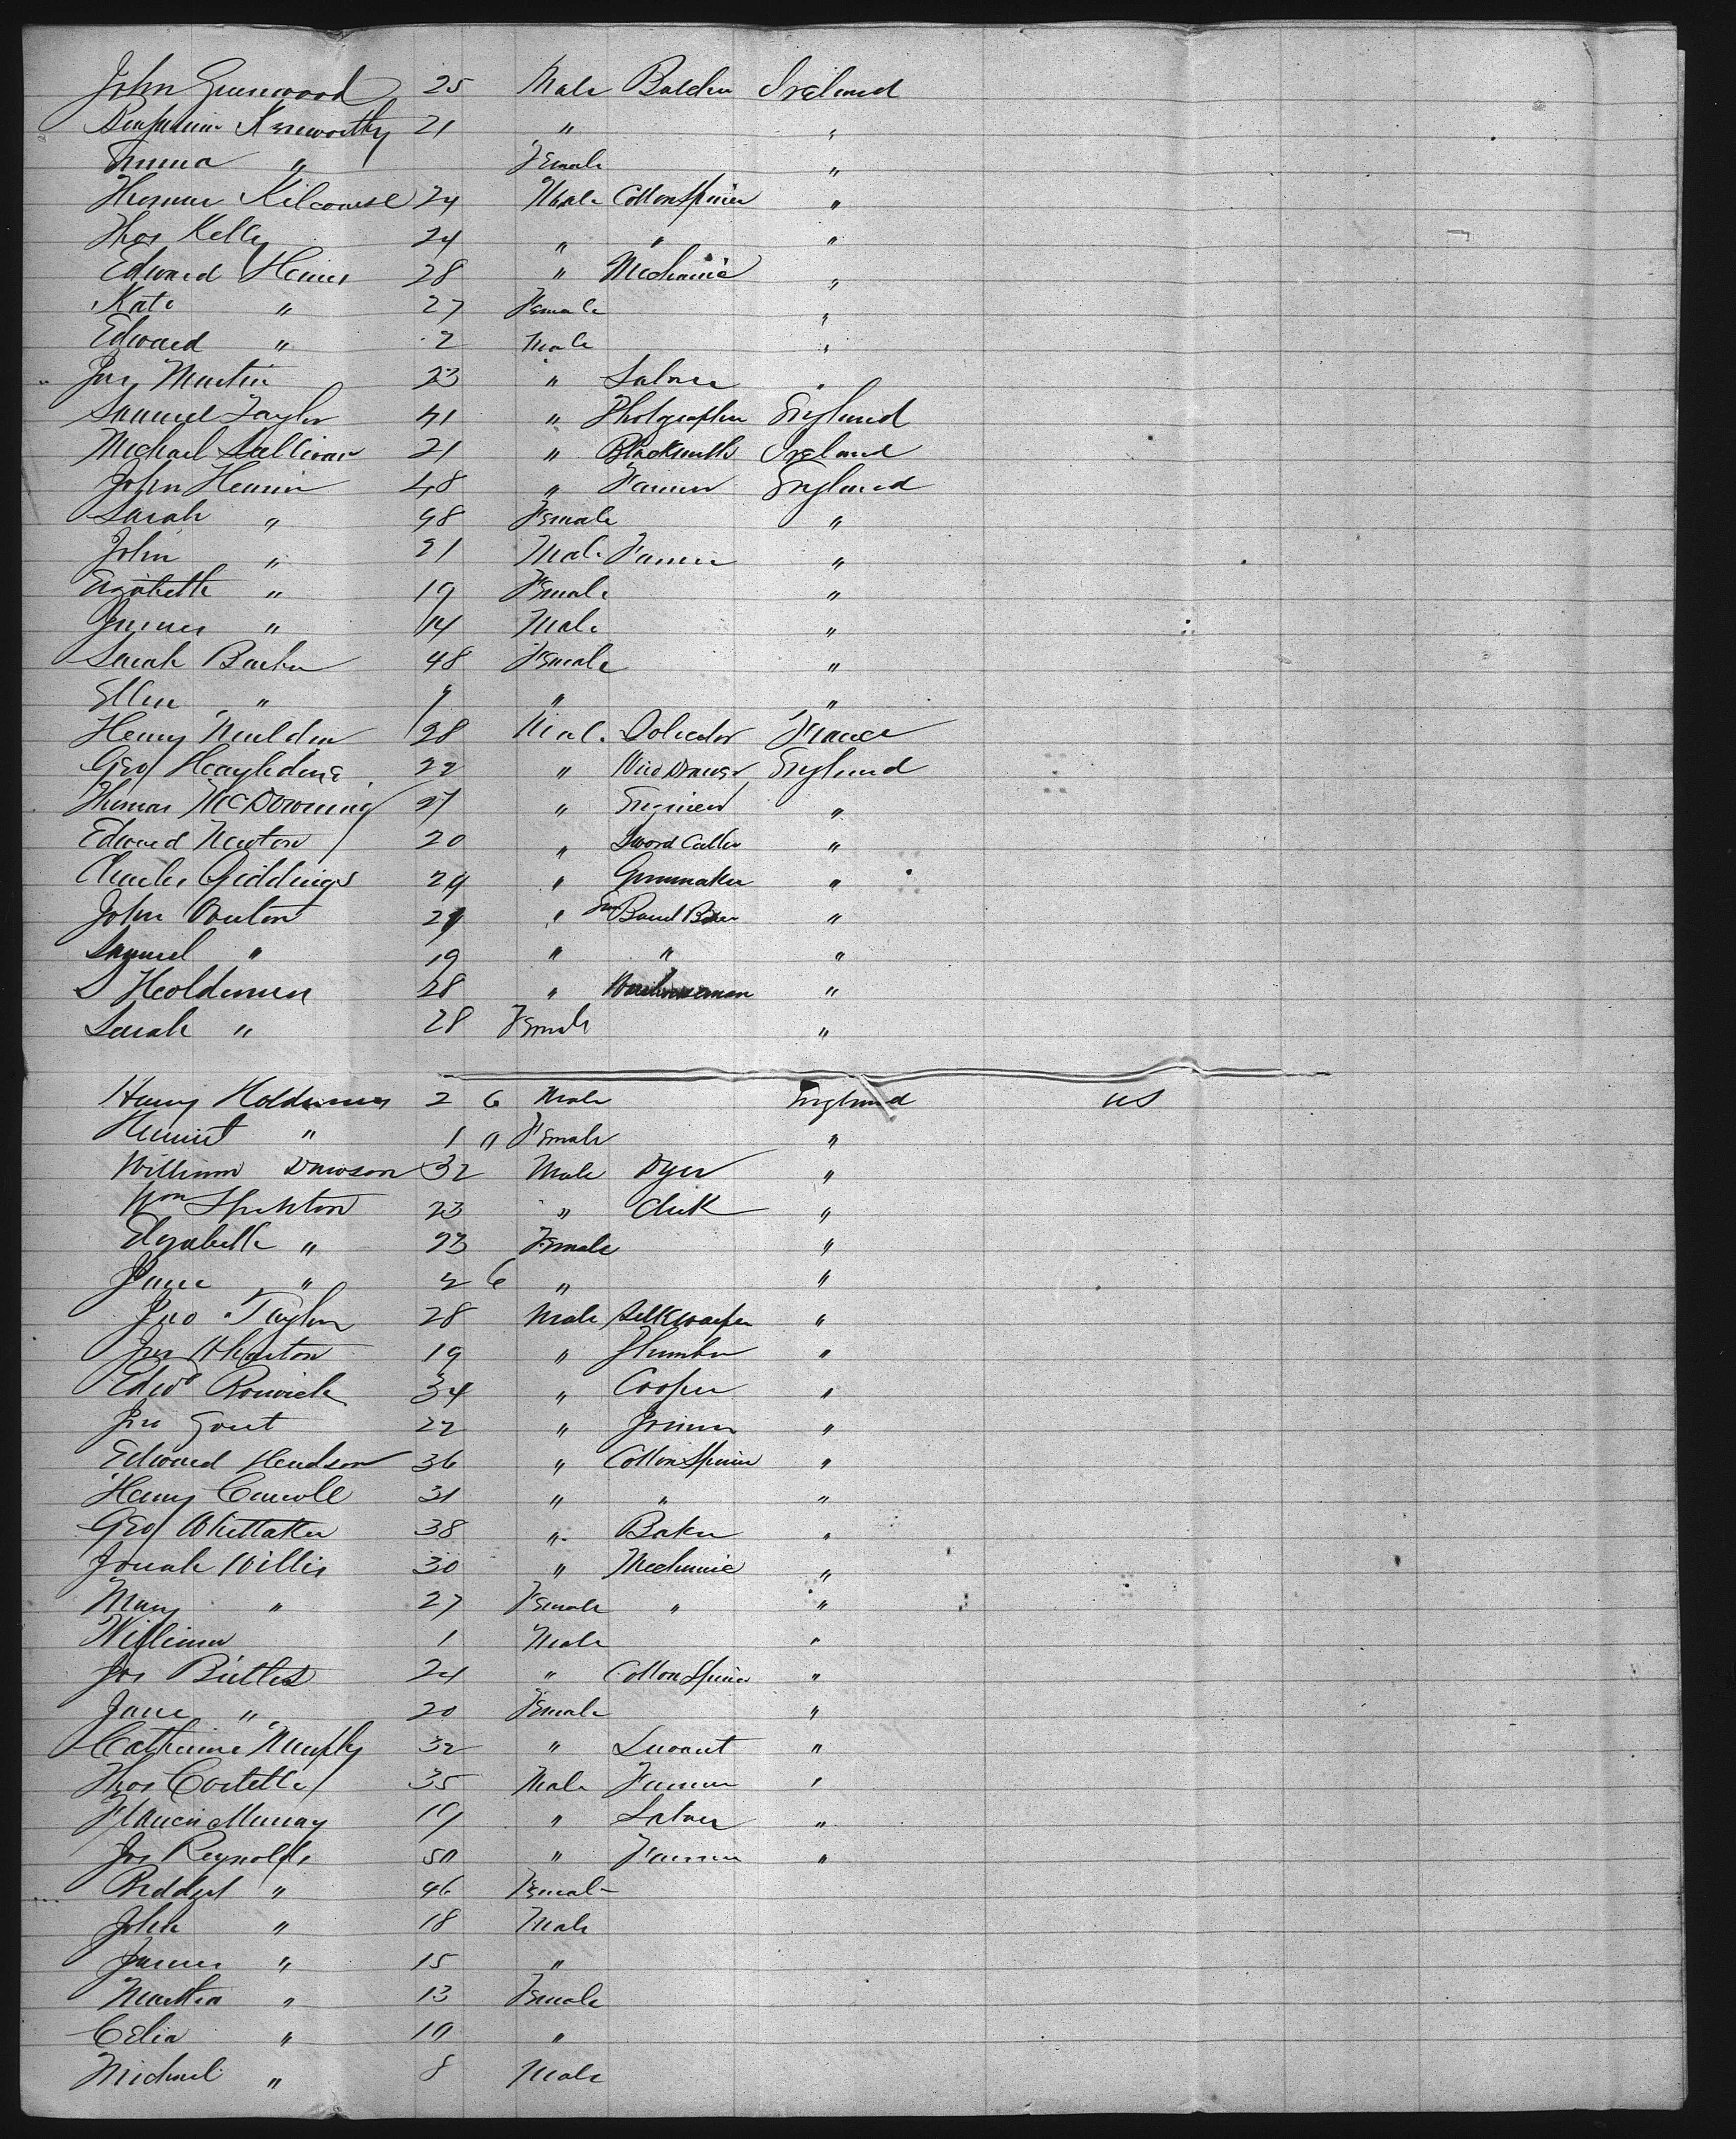 John Greenwood 25 Male Ireland
Benjamin Kenworthy 21 " "
Emma " Female "
Thomas Kilcourse 24 Male Cotton Spiner "
Thos Kelly 24 " " "
Edward Heines 28 " Mechanic "
Kate " 27 Female "
Edward " 2 Male "
Jas Martin 23 " Labourer "
Samuel Taylor 41 " Photgrapher England
Michael Sullivan 21 " Blacksmith Ireland
John 48 " Farmer England
Sarah " 48 Female "
John " 21 Male Farmer "
Elizabeth " 19 Female "
James " 14 Male "
Sarah Barker 48 Female "
Ellen " 9 " "
Henry 28 Male France
Geo 22 " Wire Drawer England
Thomas McDowning 27 " Engineer "
Edward Newton 20 " Sword Cutler "
Charles Giddings 29 " Gunmaker "
John 21 " Gun Barrel Borer "
Samuel " 19 " " "
S Holdimer 28 " "
Sarah " 28 Female "
Henry Holdimer 2 6 Male England US
" 1 " Female "
William Dawson 32 Male Dyer "
Wm 23 " Clerk "
Elizabeth " 23 Female "
Jane " 2 6 " "
Jno Taylor 28 Male "
Jas Wharton 19 " Plumber "
Edwd 34 " Cooper "
Jno 22 " Joiner "
Edward Hudson 36 " Cotton Spiner "
Henry 31 " " "
Geo Whittaker 38 " Baker "
Jonah Willis 30 " Mechanic "
Mary " 27 Female " "
William 1 Male "
Jos 24 " Cotton Spiner "
Jane " 20 Female "
Catherine Murphy 32 " Servant "
Thos Costello 35 Male Farmer "
Francis Murray 19 " Labourer "
Jos Reynolds 50 " Farmer "
Bridget " 46 Female
John " 18 Male
James " 15 "
Martha " 13 Female
Celia " 10 "
Michael " 8 Male